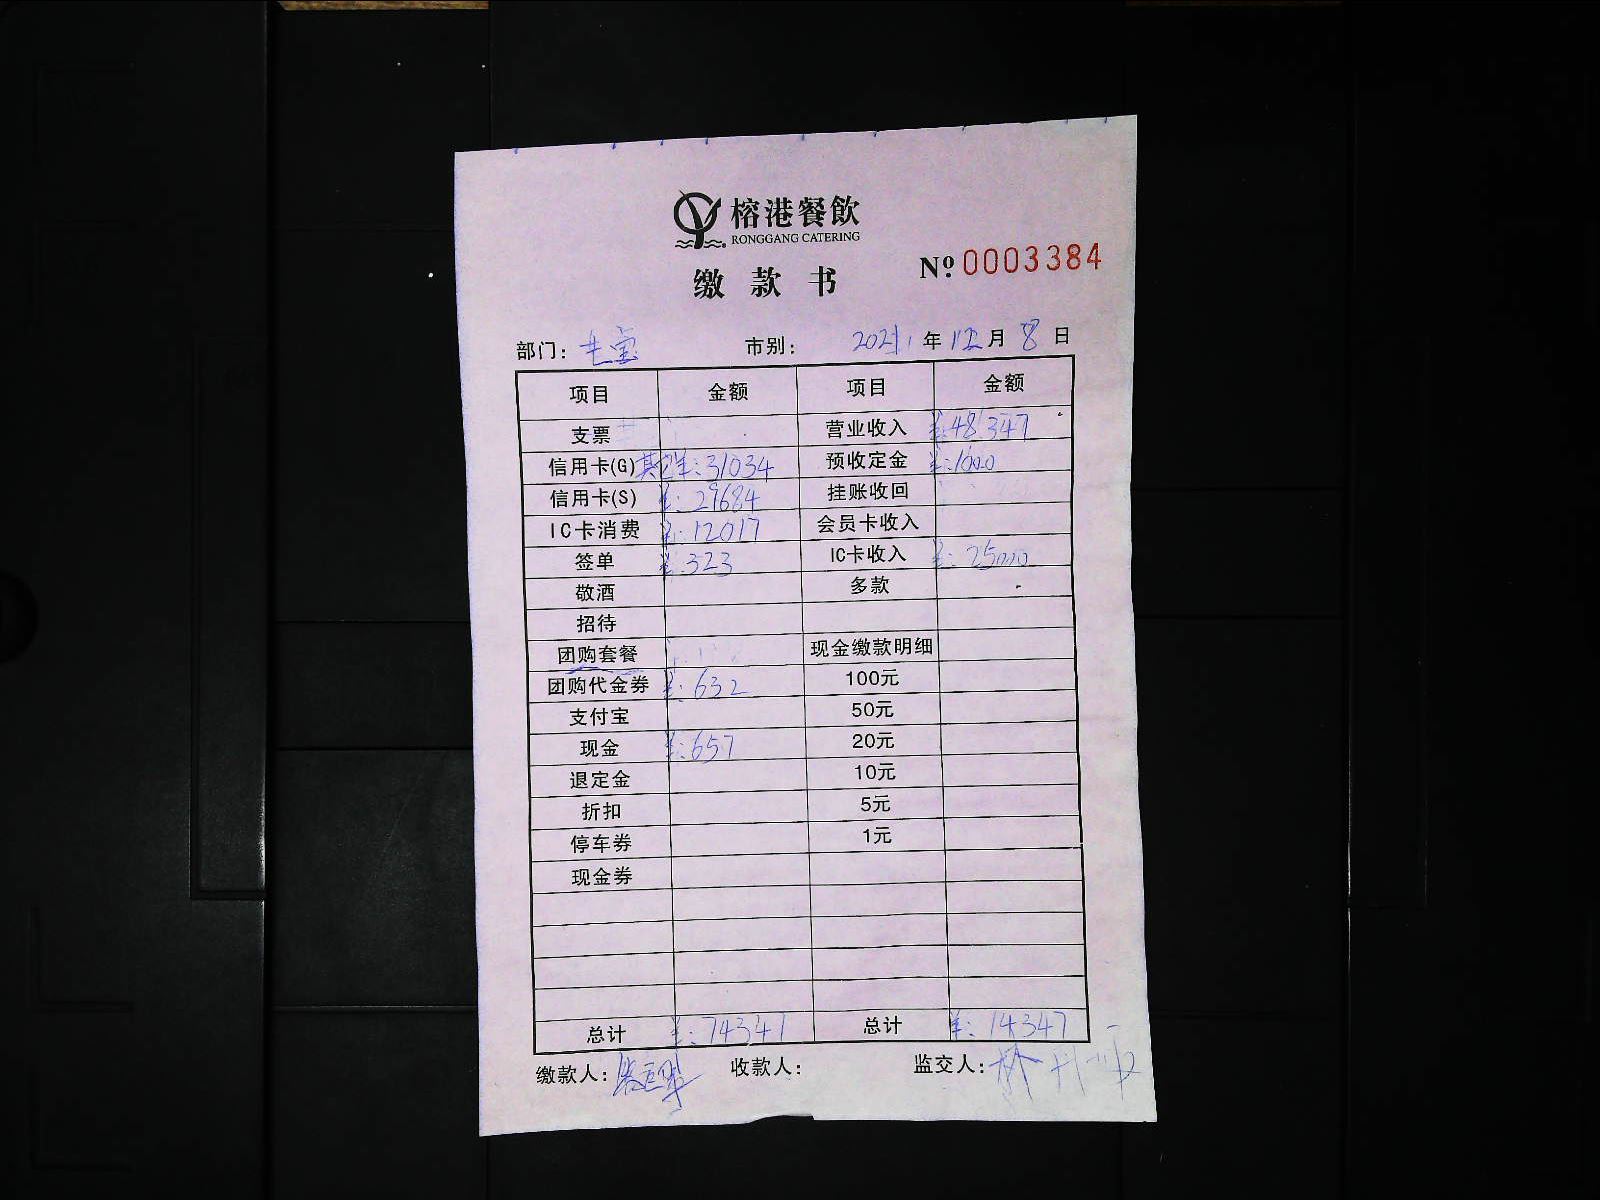 榕港餐飲
RONGGANG CATERING
缴款书 Nº 0003384
部门: 市别: 2021年12月8日
项目 金额 项目 金额
支票 营业收入 ¥:48347
信用卡(G) ¥:31034 预收定金 ¥:1000
信用卡(S) ¥:29684 挂账收回
IC卡消费 ¥:12017 会员卡收入
签单 ¥:323 IC卡收入 ¥:25000
敬酒 多款
招待
团购套餐 现金缴款明细
团购代金券 ¥:632 100元
支付宝 50元
现金 ¥:657 20元
退定金 10元
折扣 5元
停车券 1元
现金券
总计 ¥:74347 总计 ¥:74347
缴款人: 收款人: 监交人: